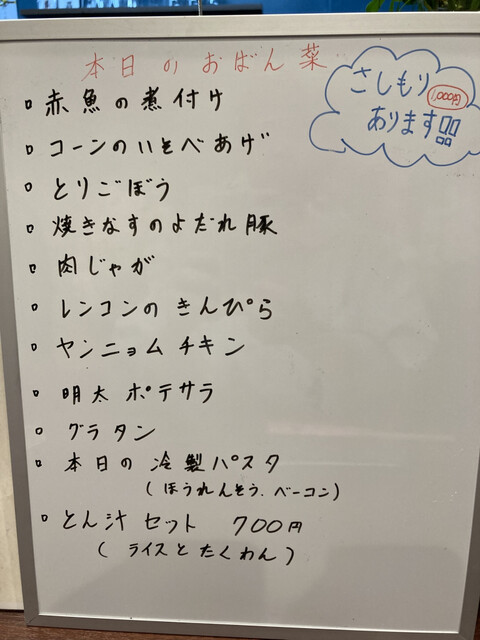 本日のおばん菜
さしもり
1,000円
あります
▫赤魚の煮付け
▫コーンのいそべあげ
▫とりごぼう
▫焼きなすのよだれ豚
▫肉じゃが
▫レンコンのきんぴら
▫ヤンニョムチキン
▫明太ポテサラ
▫グラタン
▫本日の冷製パスタ
(ほうれんそう、ベーコン)
▫とん汁セット 700円
(ライスとたくわん)